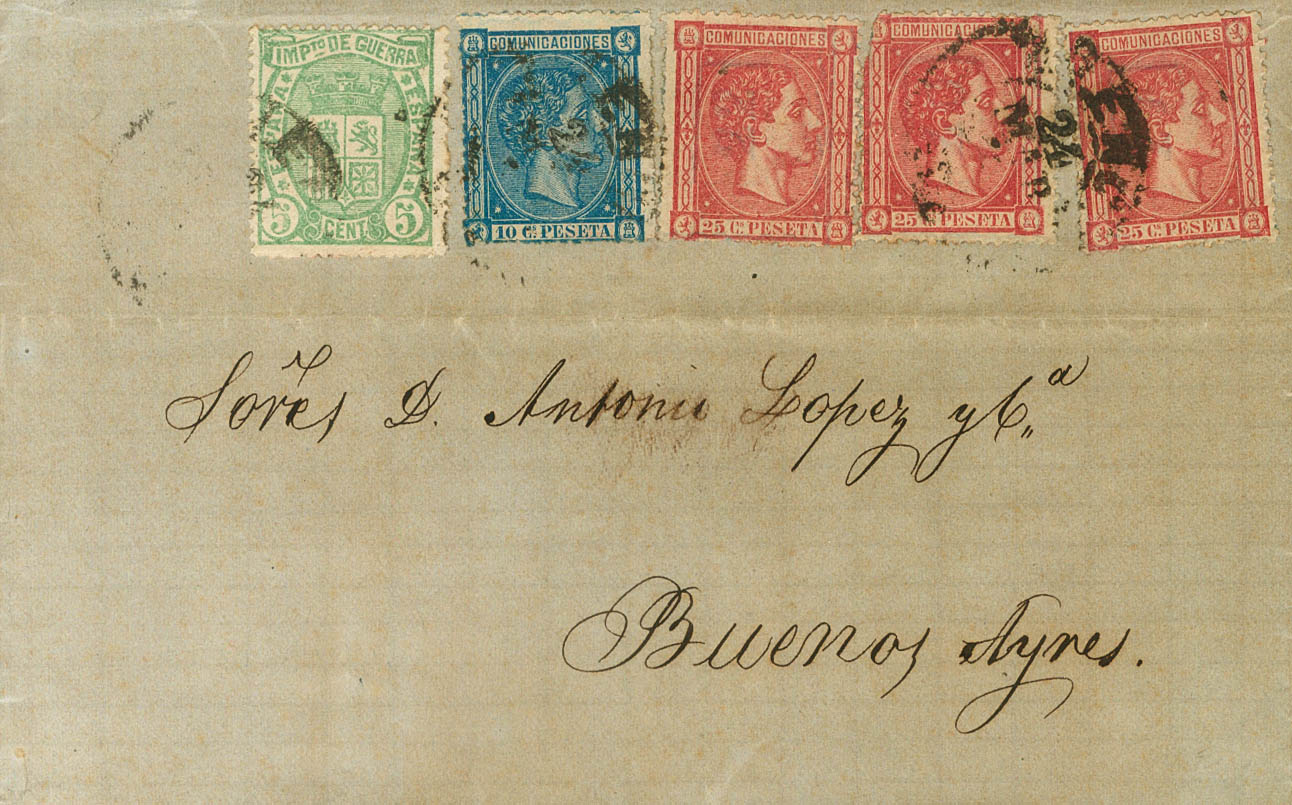 IMPTO DE GUERRA
ESPAÑA
5 CENT. 5
COMUNICACIONES
10 CS PESETA
COMUNICACIONES
25 CS PESETA
COMUNICACIONES
25 CS PESETA
COMUNICACIONES
25 CS PESETA
24
Sōres D. Antonio Lopez y Cª
Buenos Ayres.